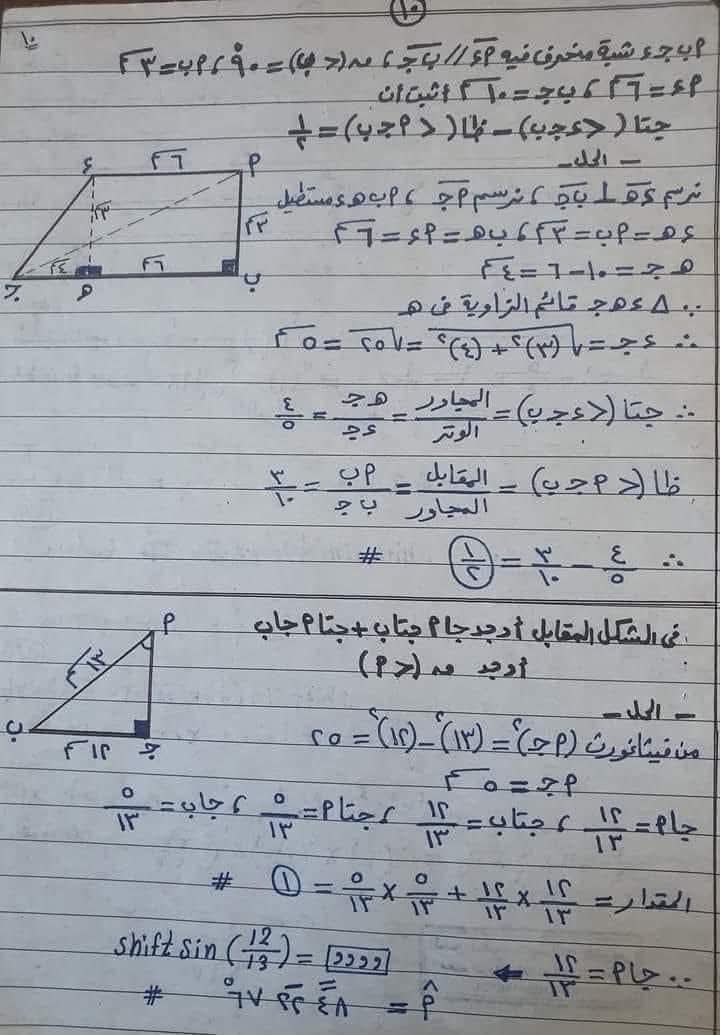 ١٠
١٠
٩ ب ج ء شبة منحرف فيه ٩ء // ب ج ، ق (> ب) = ٩٠° ، ٩ ب = ٣ سم
٩ء = ٦ سم ، ب ج = ١٠ سم أثبت أن
جتا (> ء ج ب) - ظا (> ٩ ج ب) = ١/٢
- الحل -
نرسم ء ه ⊥ ب ج ، نرسم ٩ ج ، ٩ ب ه ء مستطيل
ء ه = ٩ ب = ٣ سم ، ب ه = ٩ ء = ٦ سم
ه ج = ١٠ - ٦ = ٤ سم
∵ Δ ء ه ج قائم الزاوية فى ه
∴ ء ج = √((٣)² + (٤)²) = √٢٥ = ٥ سم
∴ جتا (> ء ج ب) = المجاور/الوتر = ه ج/ء ج = ٤/٥
ظا (> ٩ ج ب) = المقابل/المجاور = ٩ ب/ب ج = ٣/١٠
∴ ٤/٥ - ٣/١٠ = ١/٢ #
ء ٦ سم ٩
٣ سم ٣ سم
ج ٤ سم ه ٦ سم ب
فى الشكل المقابل أوجد جا ٩ جتا ب + جتا ٩ جا ب
أوجد ق (> ٩)
- الحل -
من فيثاغورث (٩ ج)² = (١٣)² - (١٢)² = ٢٥
٩ ج = ٥ سم
جا ٩ = ١٢/١٣ ، جتا ب = ١٢/١٣ ، جتا ٩ = ٥/١٣ ، جا ب = ٥/١٣
المقدار = ١٢/١٣ × ١٢/١٣ + ٥/١٣ × ٥/١٣ = ١ #
∵ جا ٩ = ١٢/١٣ ← shift sin (12/13) = وووو
٩^ = ٤٨ً ٢٢َ ٦٧° #
٩
١٣ سم
ب ١٢ سم ج